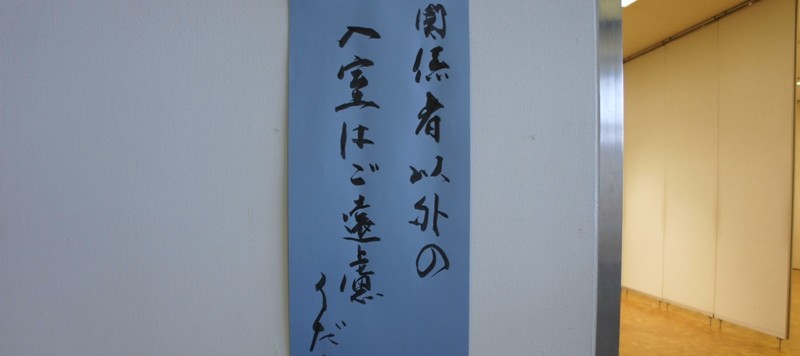 関係者以外の
入室はご遠慮
くだ